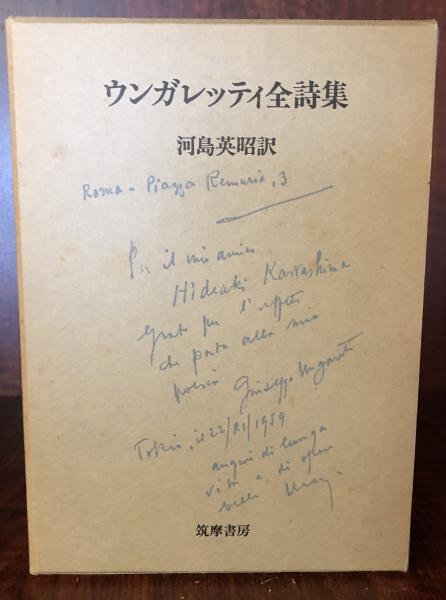 ウンガレッティ全詩集
河島英昭訳
Roma - Piazza Remuria, 3
Per il mio amico
Hideaki Kawashima
grato per l'affetto
che porta alla mia
poesia Giuseppe Ungaretti
Tokio, il 22/XI/1959
auguri di lunga
vita e di opere
belle
筑摩書房